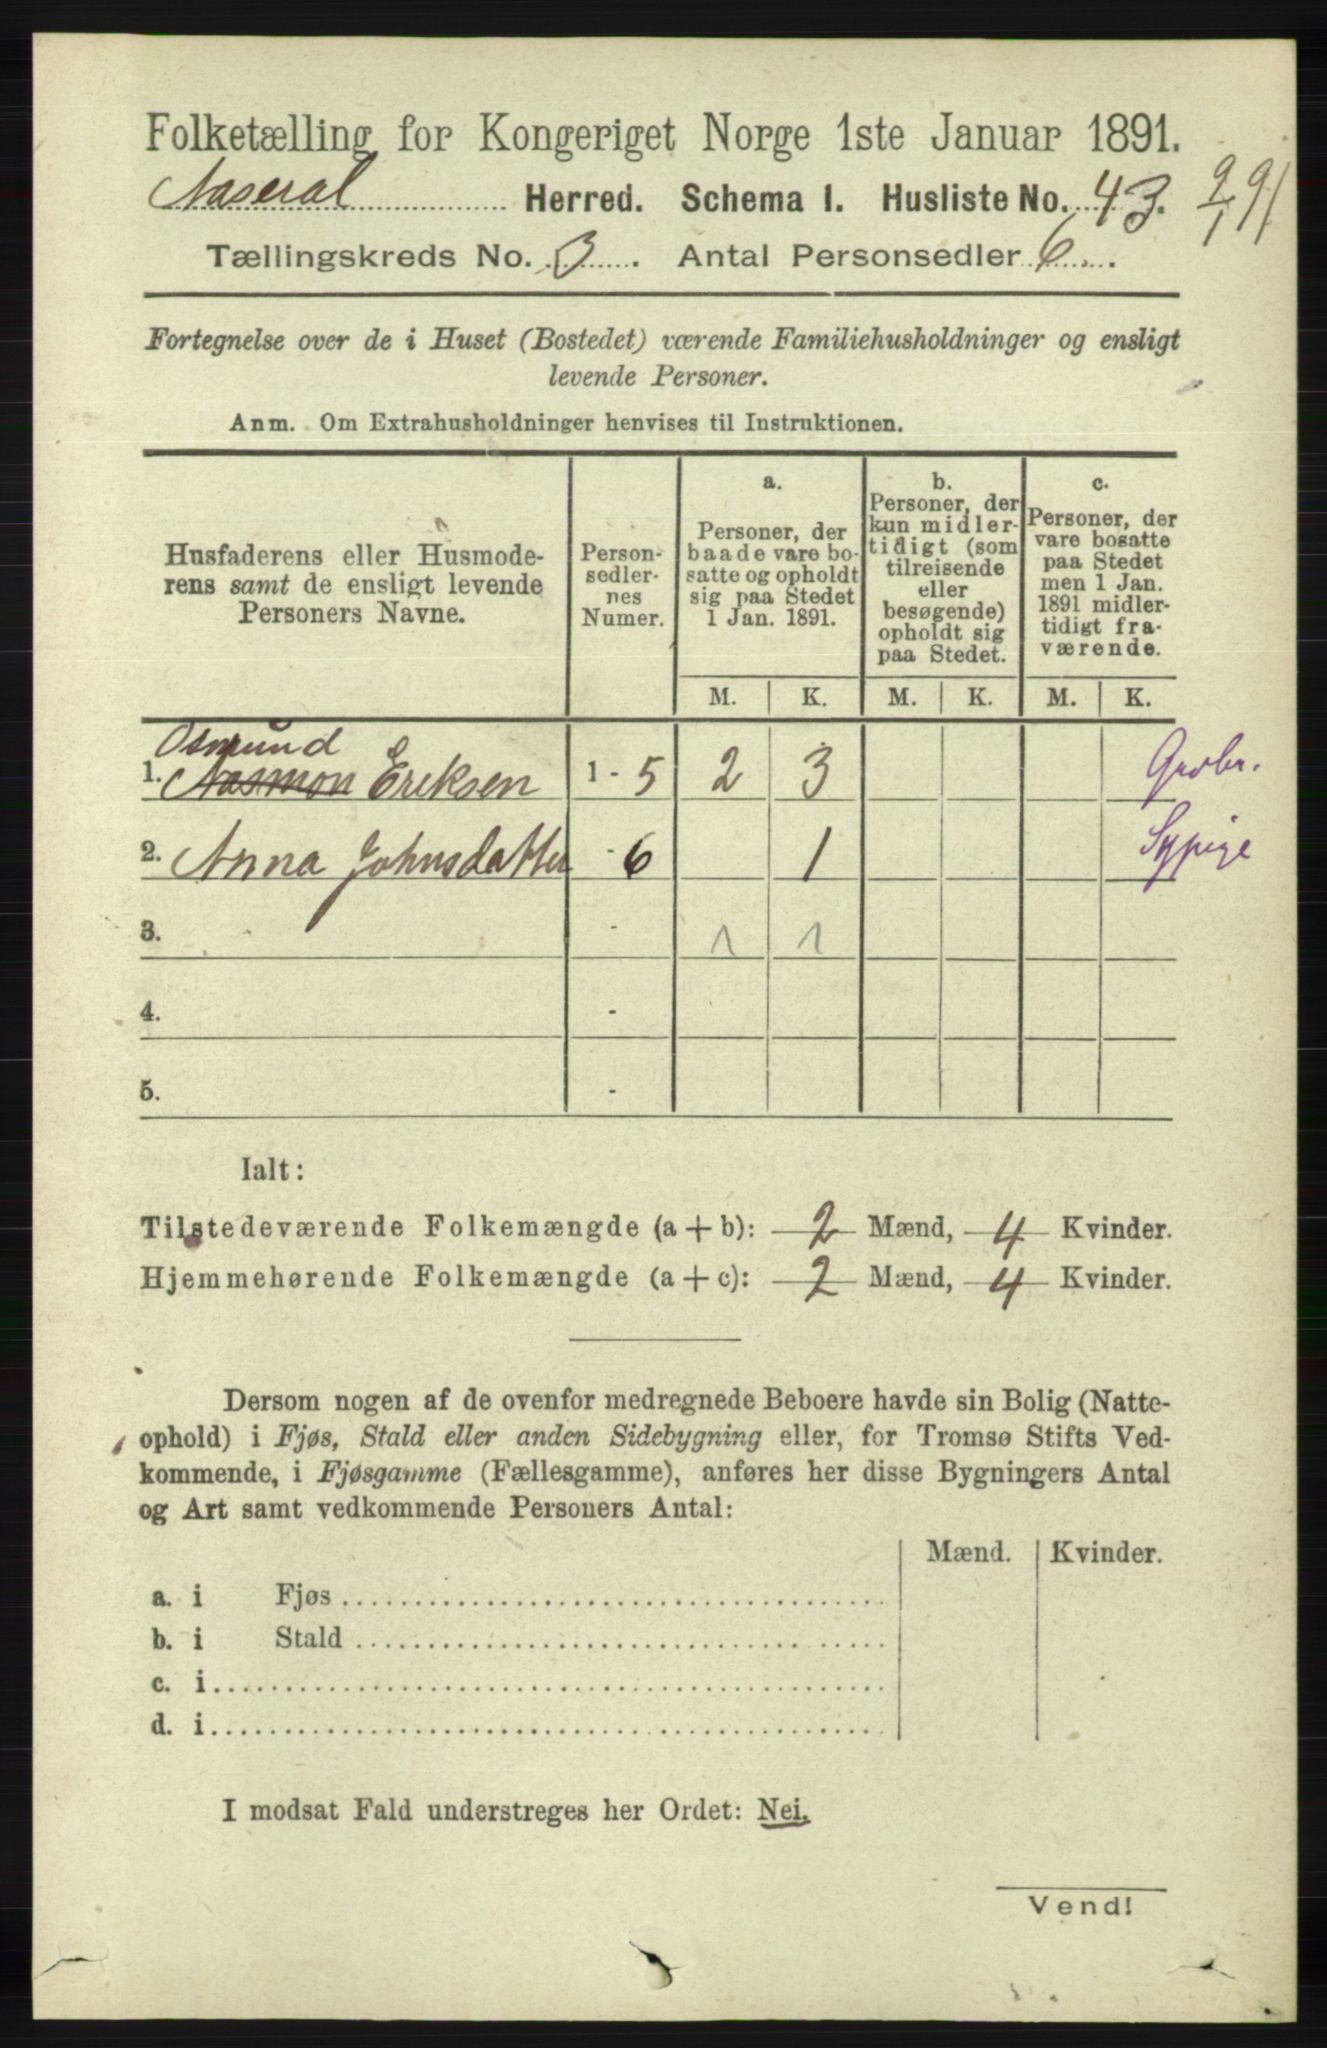 Folketælling for Kongeriget Norge 1ste Januar 1891.
Aaseral Herred. Schema 1. Husliste No. 43. 9/1 91
Tællingskreds No. 3. Antal Personsedler 6
Fortegnelse over de i Huset (Bostedet) værende Familiehusholdninger og ensligt
levende Personer.
Anm. Om Extrahusholdninger henvises til Instruktionen.
Husfaderens eller Husmode-
rens samt de ensligt levende
Personers Navne.
Person-
sedler-
nes
Numer.
a.
Personer, der
baade vare bo-
satte og opholdt
sig paa Stedet
1 Jan. 1891.
b.
Personer, der
kun midler-
tidigt (som
tilreisende
eller
besøgende)
opholdt sig
paa Stedet.
c.
Personer, der
vare bosatte
paa Stedet
men 1 Jan.
1891 midler-
tidigt fra-
værende.
M. K. M. K. M. K.
Osmund
1. Aasmon Eriksen 1 - 5 2 3 Grdbr.
2. Anna Johnsdatter - 6 1 Sypige
3. - 1 1
4. -
5. -
Ialt:
Tilstedeværende Folkemængde (a + b): 2 Mænd, 4 Kvinder.
Hjemmehørende Folkemængde (a + c): 2 Mænd, 4 Kvinder.
Dersom nogen af de ovenfor medregnede Beboere havde sin Bolig (Natte-
ophold) i Fjøs, Stald eller anden Sidebygning eller, for Tromsø Stifts Ved-
kommende, i Fjøsgamme (Fællesgamme), anføres her disse Bygningers Antal
og Art samt vedkommende Personers Antal:
Mænd. Kvinder.
a. i Fjøs
b. i Stald
c. i
d. i
I modsat Fald understreges her Ordet: Nei.
Vend!